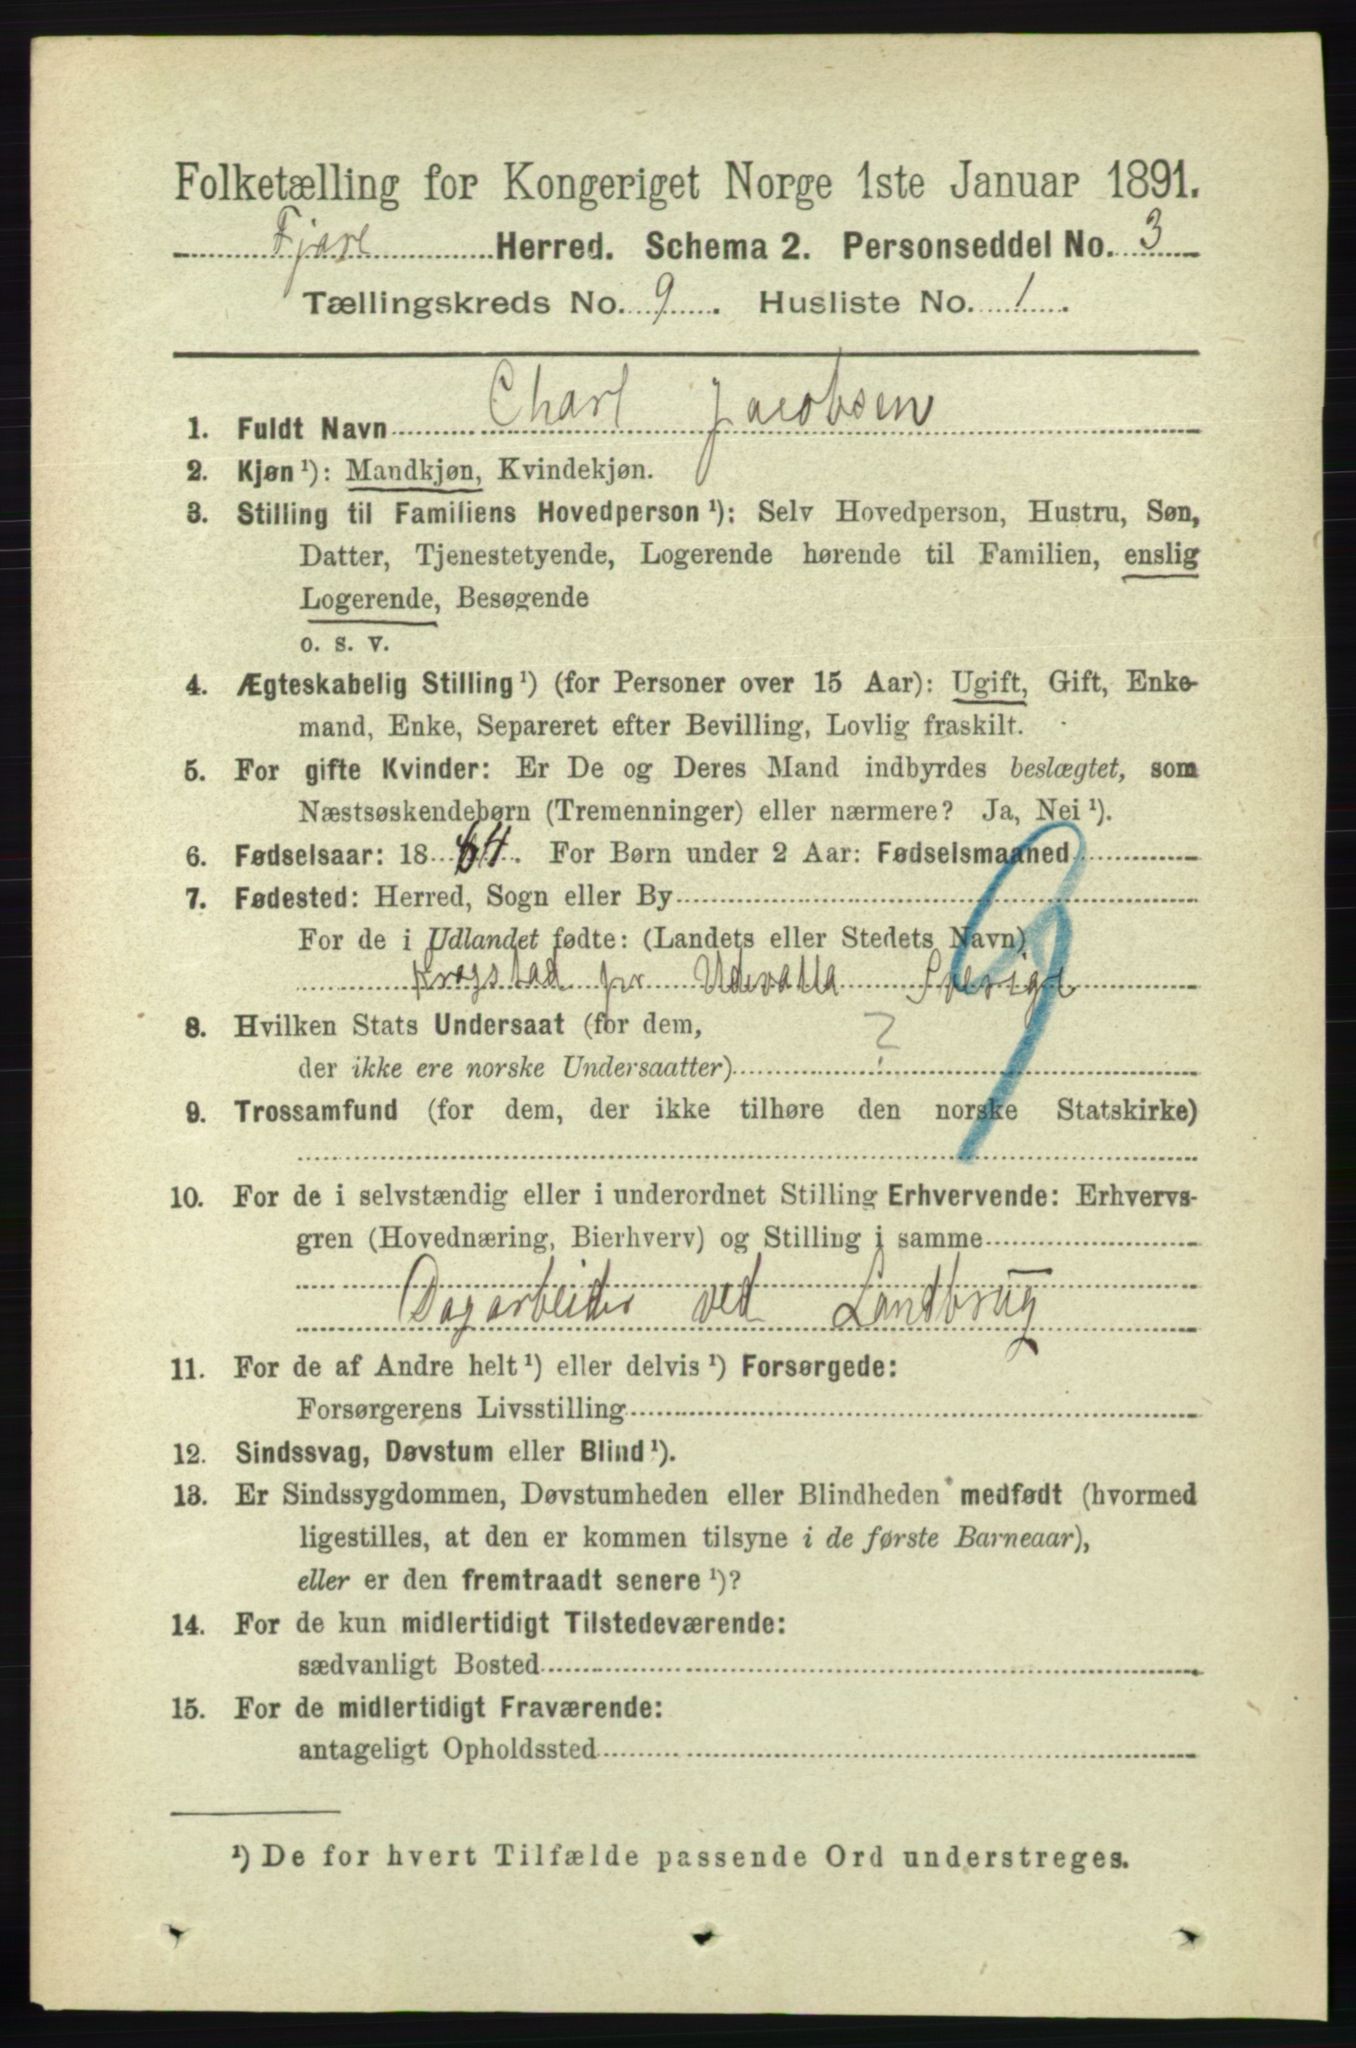 Folketælling for Kongeriget Norge 1ste Januar 1891.
Fjære Herred. Schema 2. Personseddel No. 3
Tællingskreds No. 9. Husliste No. 1.
1. Fuldt Navn Charl Jacobsen
2. Kjøn ¹): Mandkjøn, Kvindekjøn.
3. Stilling til Familiens Hovedperson ¹): Selv Hovedperson, Hustru, Søn,
Datter, Tjenestetyende, Logerende hørende til Familien, enslig
Logerende, Besøgende
o. s. v.
4. Ægteskabelig Stilling ¹) (for Personer over 15 Aar): Ugift, Gift, Enke-
mand, Enke, Separeret efter Bevilling, Lovlig fraskilt.
5. For gifte Kvinder: Er De og Deres Mand indbyrdes beslægtet, som
Næstsøskendebørn (Tremenninger) eller nærmere? Ja, Nei ¹).
6. Fødselsaar: 18 64. For Børn under 2 Aar: Fødselsmaaned
7. Fødested: Herred, Sogn eller By
For de i Udlandet fødte: (Landets eller Stedets Navn)
Krogstad pr Udevalla Sverige
8. Hvilken Stats Undersaat (for dem,
der ikke ere norske Undersaatter) ?
9. Trossamfund (for dem, der ikke tilhøre den norske Statskirke)
10. For de i selvstændig eller i underordnet Stilling Erhvervende: Erhvervs-
gren (Hovednæring, Bierhverv) og Stilling i samme
Dagarbeider ved Landbrug
11. For de af Andre helt ¹) eller delvis ¹) Forsørgede:
Forsørgerens Livsstilling
12. Sindssvag, Døvstum eller Blind ¹).
13. Er Sindssygdommen, Døvstumheden eller Blindheden medfødt (hvormed
ligestilles, at den er kommen tilsyne i de første Barneaar),
eller er den fremtraadt senere ¹)?
14. For de kun midlertidigt Tilstedeværende:
sædvanligt Bosted
15. For de midlertidigt Fraværende:
antageligt Opholdssted
¹) De for hvert Tilfælde passende Ord understreges.